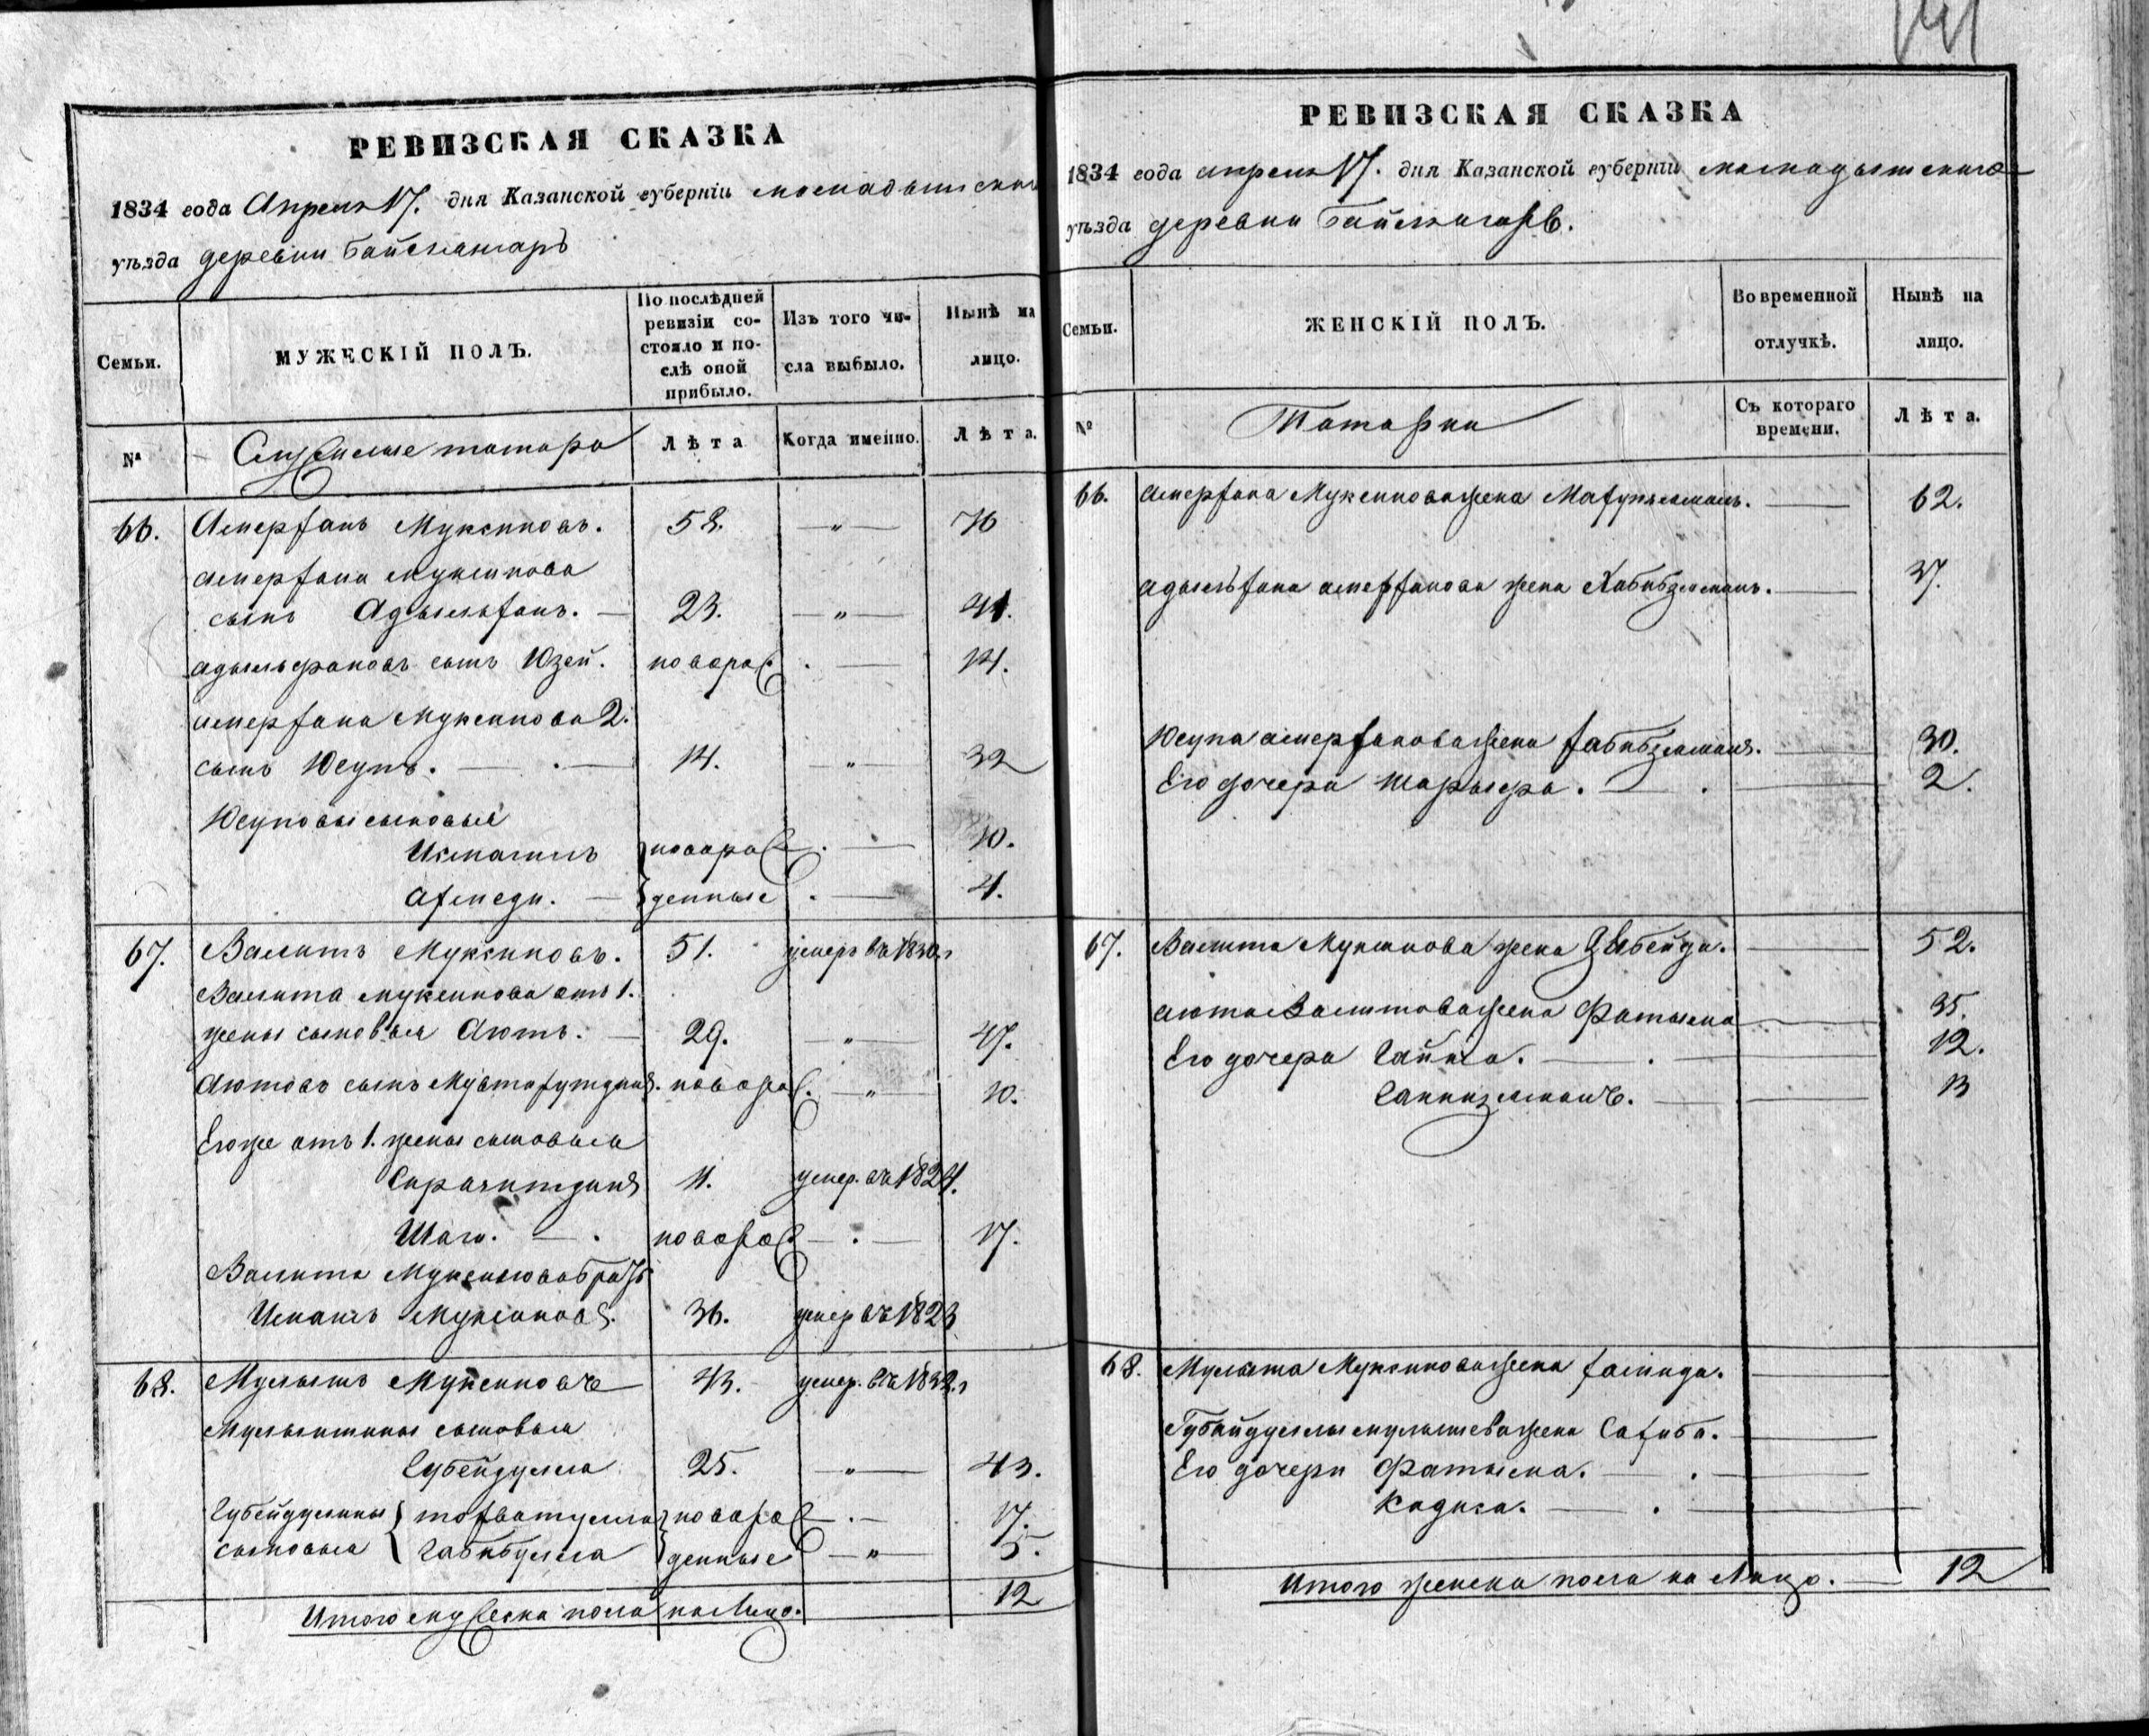 141
РЕВИЗСКАЯ СКАЗКА
1834 года Апреля 17. дня Казанской губерніи мамадышской
уѣзда деревни Байсмангаръ
Семьи.
МУЖЕСКІЙ ПОЛЪ.
По послѣдней ревизіи со-
стояло и по-
слѣ оной
прибыло.
Изъ того чи-
сла выбыло.
Нынѣ на
лицо.
№
Служилые татара
Лѣта
Когда именно.
Лѣта.
66. Амерханъ Муксиновъ. 58. — „ — 76
Амерхана Муксинова
сынъ Адыльханъ. — 23. — „ — 41.
адыльфановъ сынъ Юзей. новорож. — 14.
амерхана Муксинова 2.
сынъ Юсупъ. — 14. — „ — 32
Юсуповы сыновья
Исмагилъ } новорож . — 10.
Ахмеди. — } денные . — 4.
67. Валитъ Муксиновъ. 51. умеръ въ 1830.
Валита Муксинова отъ 1.
жены сыновья Аютъ. — 29. — „ — 47.
Аютовъ сынъ новорож. — „ — 10.
Его же отъ 1. жены сыновья
Сиразитдинъ 11. умер. въ 1824.
Шаги. — . новорож — . — 17.
Валита Муксинова братъ
Исхакъ Муксиновъ. 36. умер въ 1823
68. Муслытъ Муксиновъ 43. умер. въ 1832.
сыновья
Губейдулла 25. — „ — 43.
Губейдуллины { новорож — . — 17.
сыновья { Габибулла } денные — „ — 5.
Итого мужеска пола на Лицо. 12
РЕВИЗСКАЯ СКАЗКА
1834 года апреля 17. дня Казанской губерніи мамадышскаго
уѣзда деревни Байсмангаръ.
Семьи.
ЖЕНСКІЙ ПОЛЪ.
Во временной
отлучкѣ.
Нынѣ на
лицо.
№
Татарки
Съ котораго
времени.
Лѣта.
66. Амерхана Муксинова жена — 62.
адыльхана амерханова жена Хабибземалъ. — 37.
Юсупа амерханова жена хабибземалъ. — 30.
Его дочери — . — 2.
67. Валита Муксинова жена Зюбейда. — 52.
аюта Валитова жена Фатыма — 35.
Его дочери Гайша. — . — 12.
— 13
68. Муслыта Муксинова жена халида. —
жена Сахиба. —
Его дочери Фатыма. — . —
Кадига. — . —
Итого женска пола на Лицо. — 12